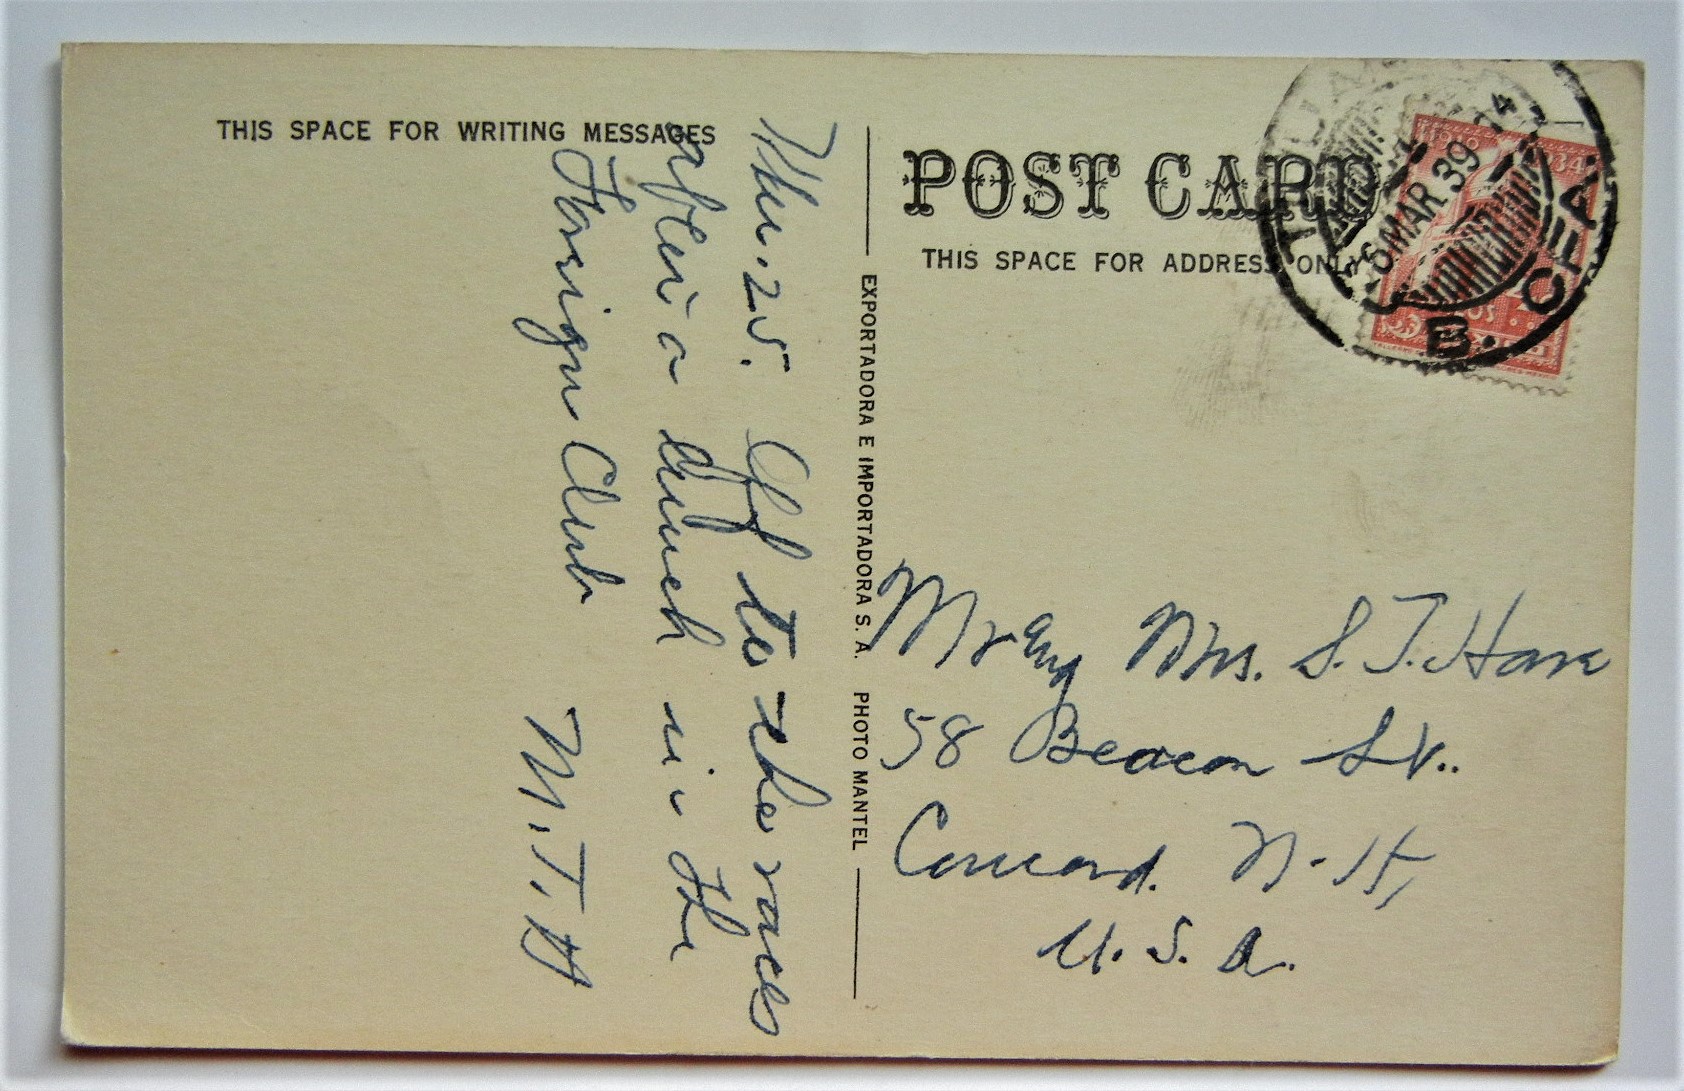 THIS SPACE FOR WRITING MESSAGES
Mar. 25. Off to the races
after a lunch in the
Foreign Club
M. T. H
EXPORTADORA E IMPORTADORA S. A. PHOTO MANTEL
POST CARD
THIS SPACE FOR ADDRESS ONLY
MAR 39
B. CFA.
Mr and Mrs. S. T. Hare
58 Beacon St..
Concord. N. H,
U. S. A.